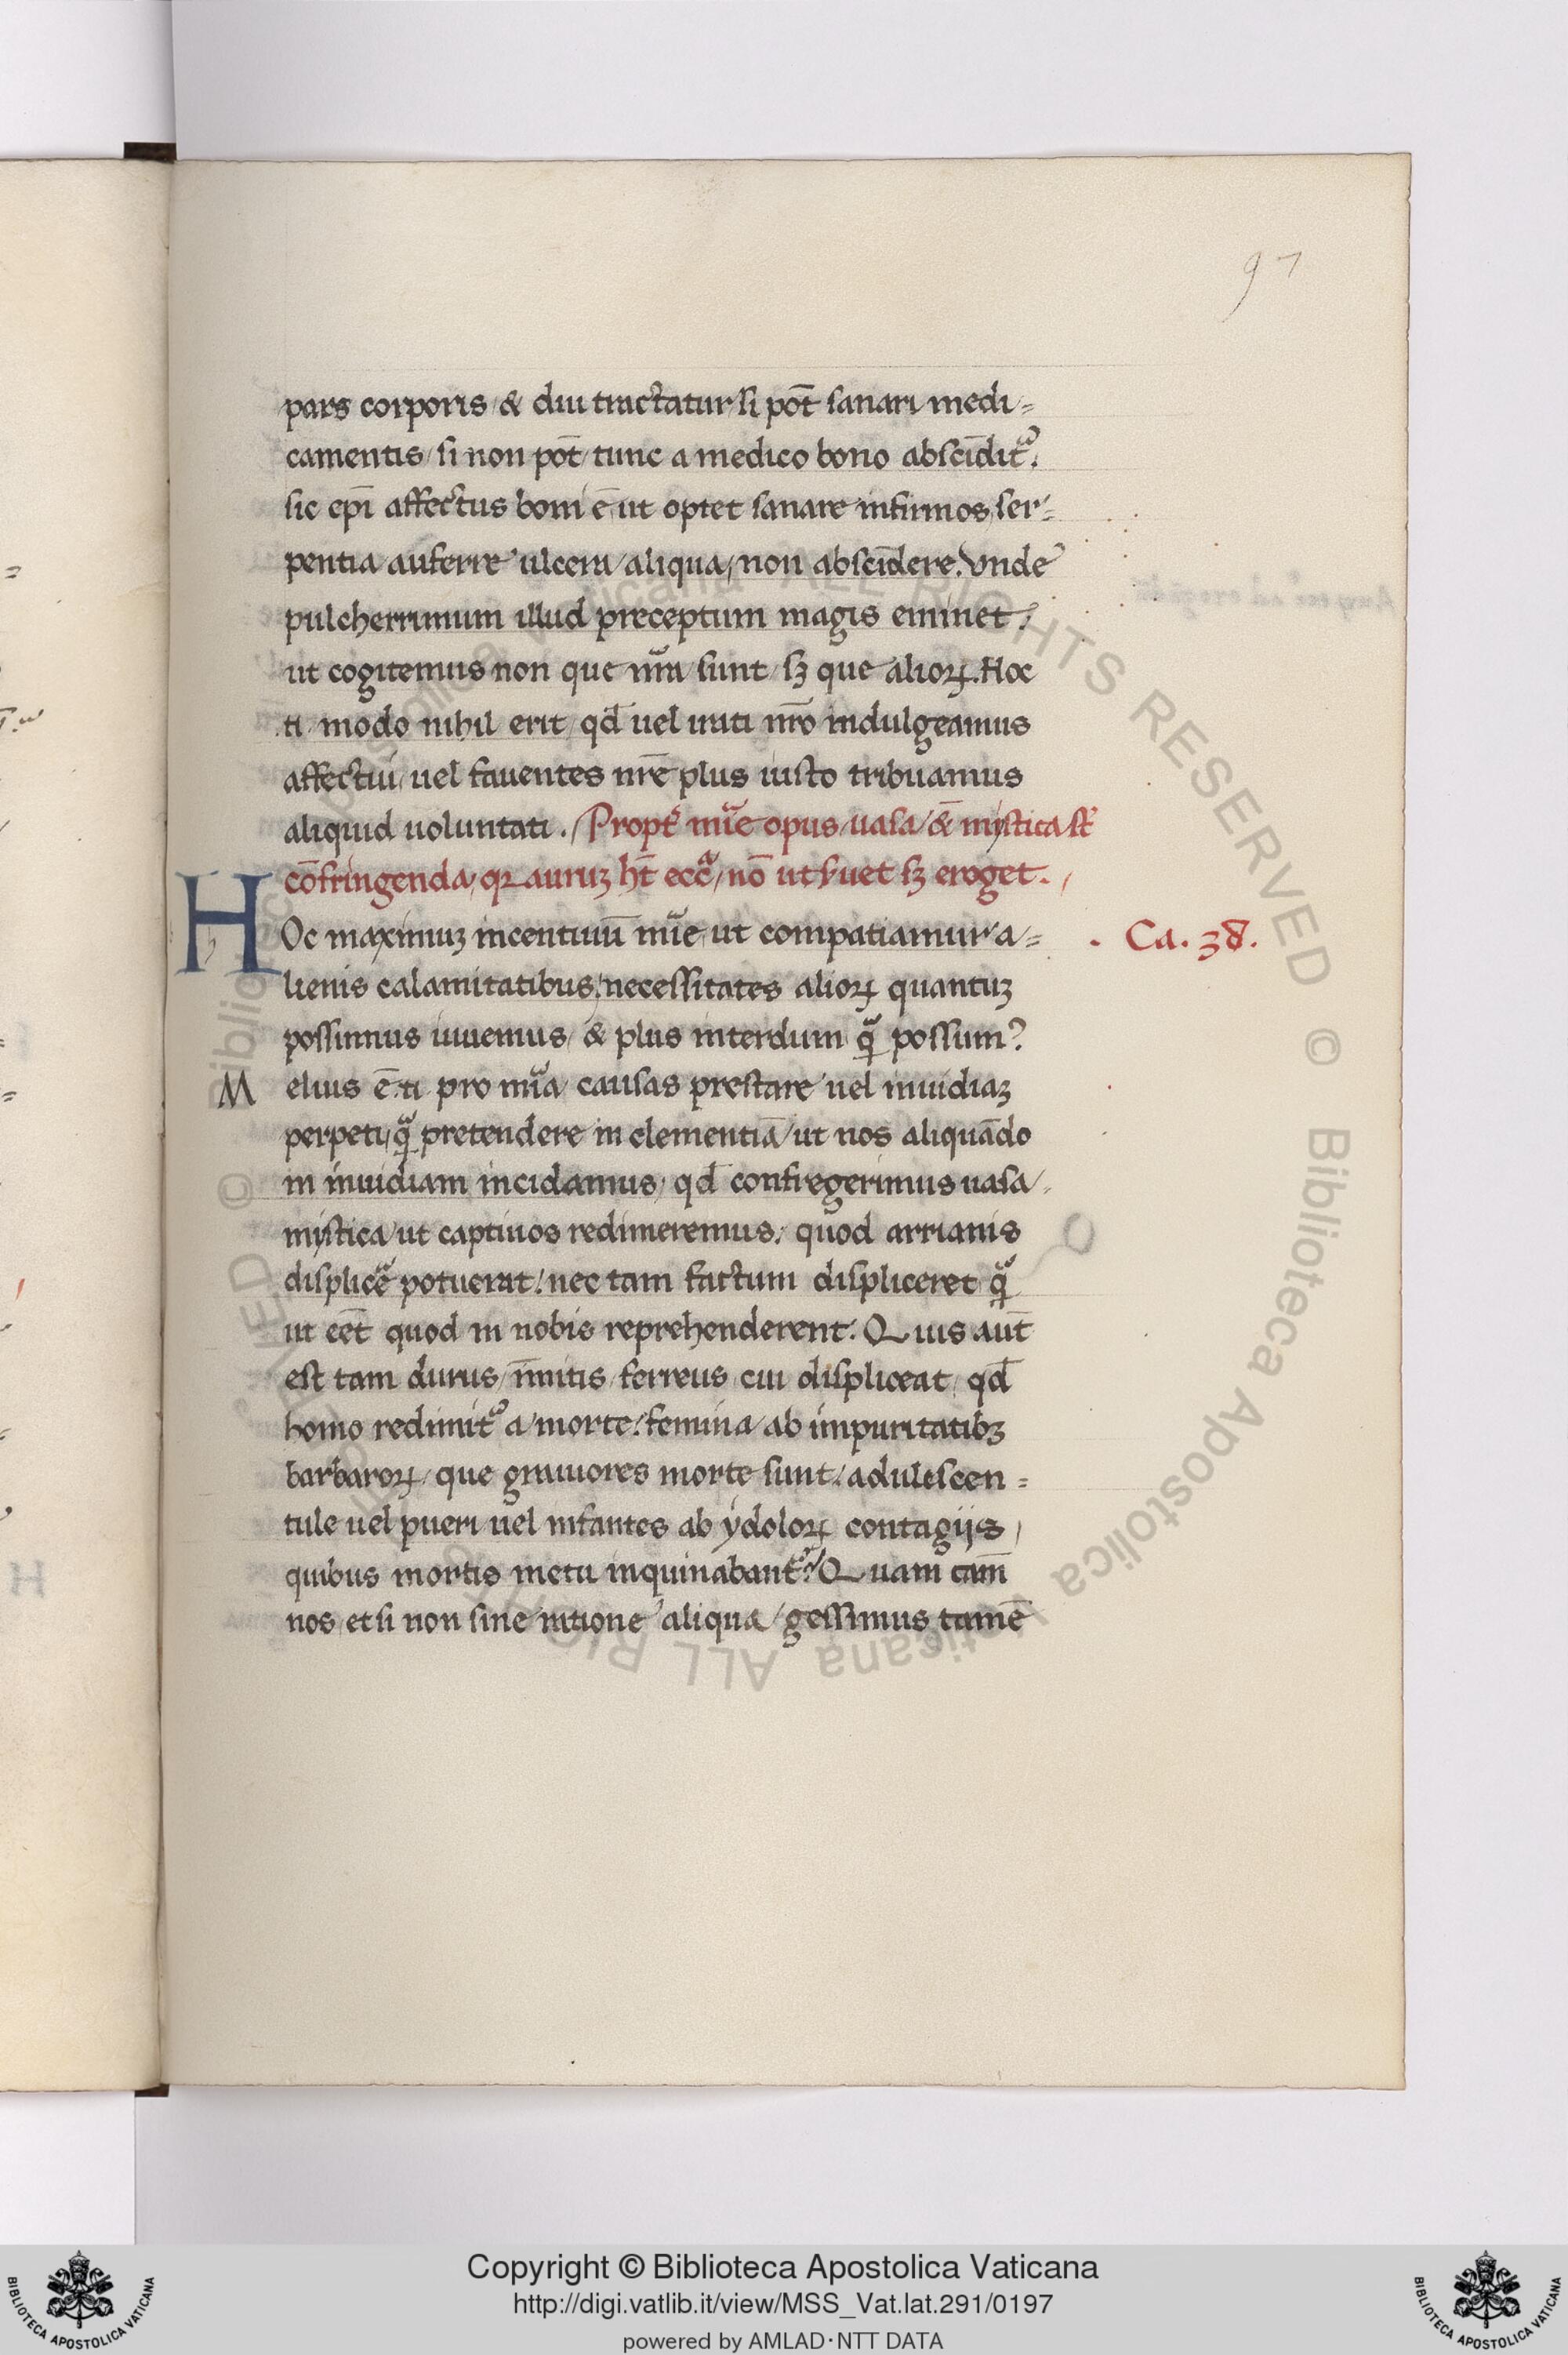 97
pars corporis / & diu tractatur / si pot̄ sanari medi=
camentis / si non pot̄ / tunc a medico bono abscīditᷣ.
sic epī affectus boni ē ut optet sanare infirmos / ser=
pentia auferre ulcera / aliqua / non abscīdere. Vnde
pulcherrimum illud preceptum magis eminet :
ut cogitemus non que nr̄a sunt / sꝫ que alioꝝ. Hoc
.n. modo nihil erit / qd̄ uel irati nr̄o indulgeamus
affectui / uel fauentes nr̄e plus iusto tribuamus
aliquid uoluntati . Propt̄ mīe opus / uasa / & mystica st̄
cōfringenda / qꝛ auruꝫ ht̄ eccā / nō ut suet sꝫ eroget .
HOc maximuꝫ incentiuū mīe / ut compatiamur a=
Ca. 38.
lienis calamitatibus / necessitates alioꝝ quantuꝫ
possimus iuuemus / & plus interdum qᷓ possum?
Melius ē .n. pro mīa causas prestare uel inuidiaꝫ
perpeti / qᷓ pretendere in clementiā / ut nos aliquādo
in inuidiam incidamus / qd̄ confregerimus uasa /
mystica / ut captiuos redimeremus / quod arrianis
displicē potuerat / nec tam factum displiceret qᷓ
ut eēt quod in nobis reprehenderent. Quis aut̄
est tam durus / īmitis / ferreus / cui displiceat / qd̄
homo redimitᷣ a morte / femina / ab impuritatibꝫ
barbaroꝝ / que grauiores morte sunt / adulescen=
tule uel pueri uel infantes ab ydoloꝝ contagijs /
quibus mortis metu inquinabantᷣ? Quam cām̄
nos / et si non sine ratione aliqua / gessimus tamē
© Biblioteca Apostolica Vaticana ALL RIGHTS RESERVED © Biblioteca Apostolica Vaticana ALL RIGHTS RESERVED
BIBLIOTECA APOSTOLICA VATICANA
Copyright © Biblioteca Apostolica Vaticana
http://digi.vatlib.it/view/MSS_Vat.lat.291/0197
powered by AMLAD·NTT DATA
BIBLIOTECA APOSTOLICA VATICANA